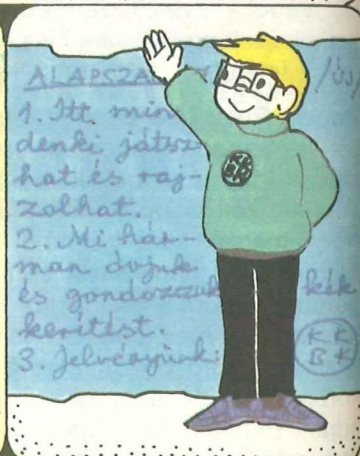 ALAPSZA /ÚJ/
1. Itt min
denki játsz-
hat és raj-
zolhat.
2. Mi hár-
man óvjuk
és gondozzuk kék
kerítést.
3. Jelvényünk: K K
B K